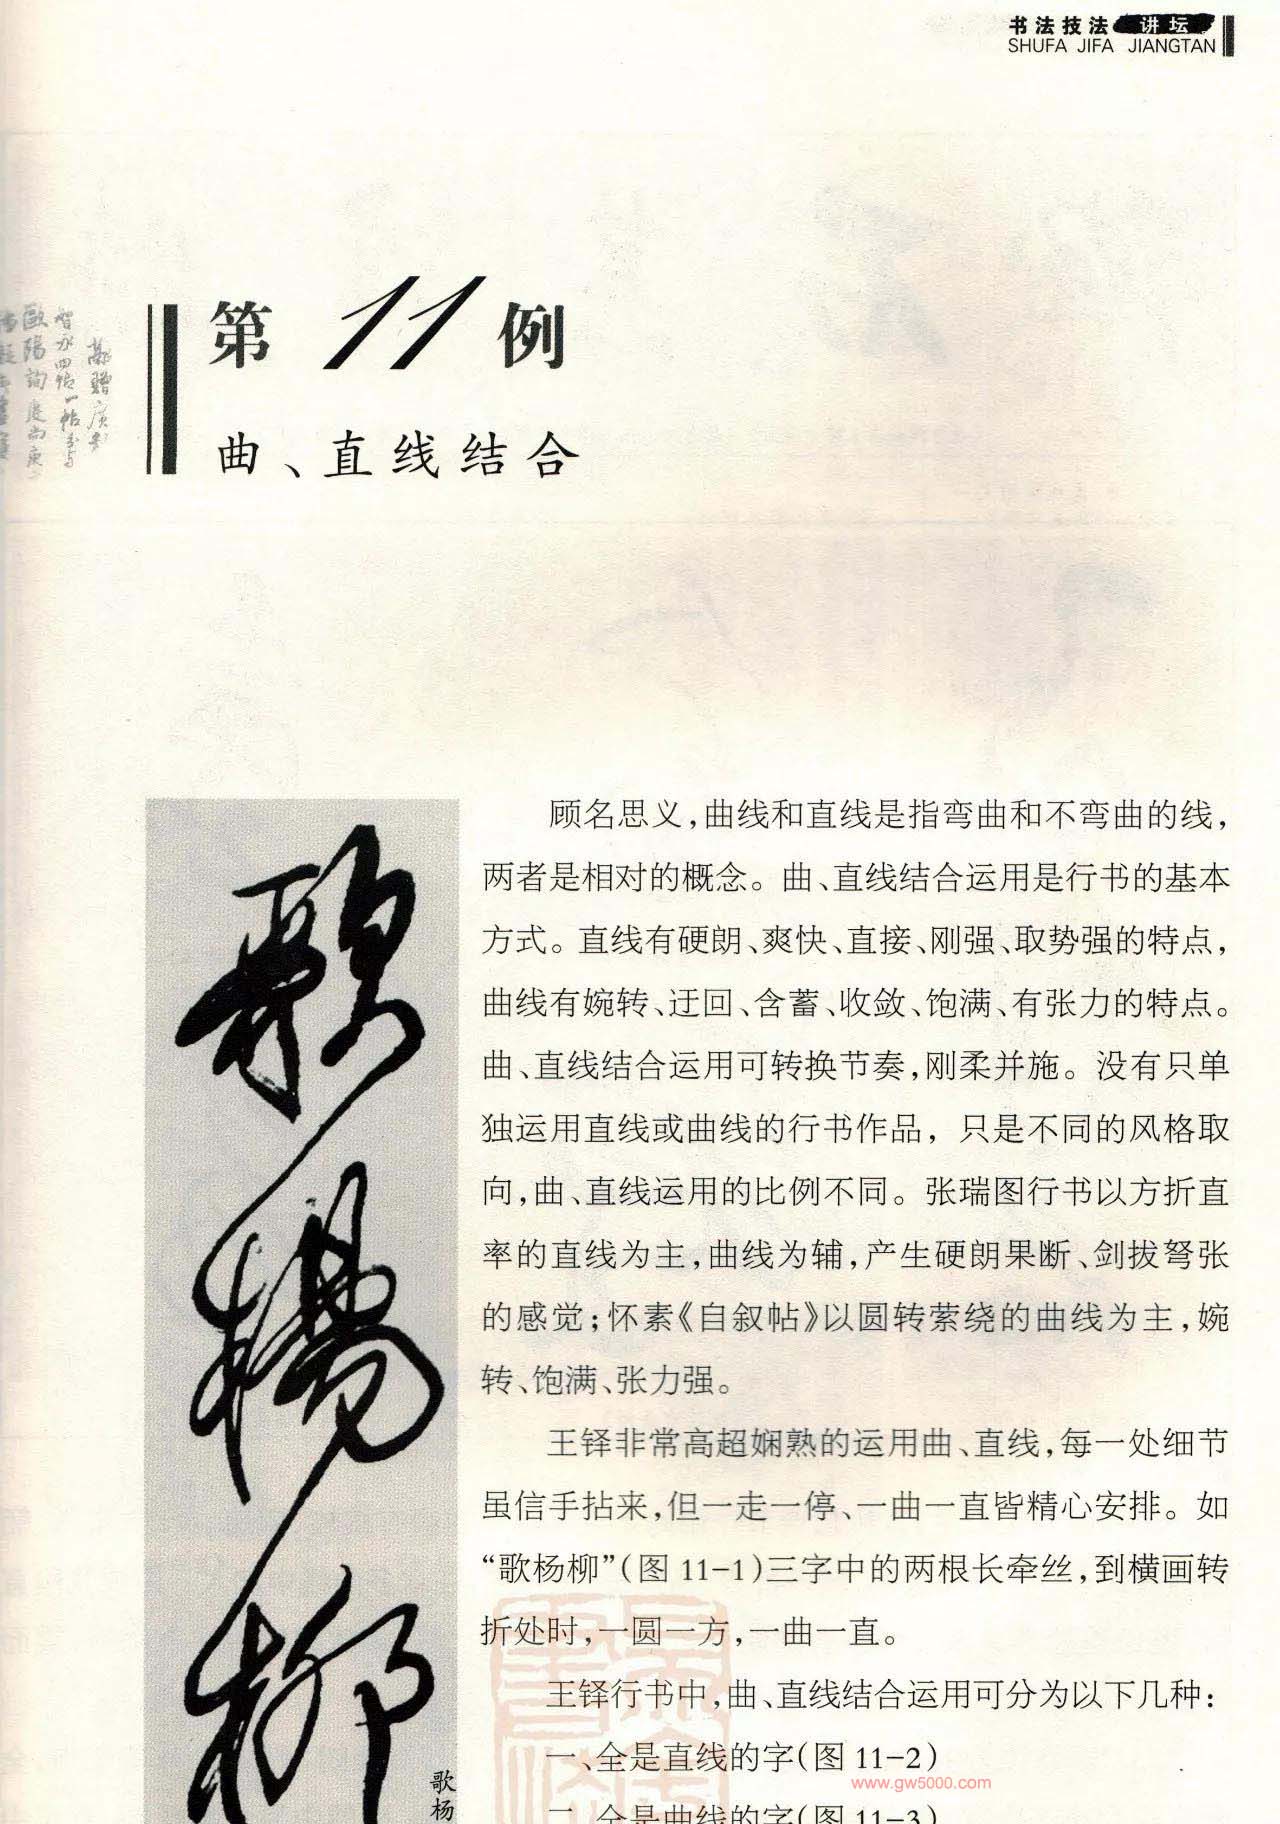 书法技法 讲坛
SHUFA JIFA JIANGTAN
第11例
曲、直线结合
歌杨柳
顾名思义，曲线和直线是指弯曲和不弯曲的线，
两者是相对的概念。曲、直线结合运用是行书的基本
方式。直线有硬朗、爽快、直接、刚强、取势强的特点，
曲线有婉转、迂回、含蓄、收敛、饱满、有张力的特点。
曲、直线结合运用可转换节奏，刚柔并施。没有只单
独运用直线或曲线的行书作品，只是不同的风格取
向，曲、直线运用的比例不同。张瑞图行书以方折直
率的直线为主，曲线为辅，产生硬朗果断、剑拔弩张
的感觉；怀素《自叙帖》以圆转萦绕的曲线为主，婉
转、饱满、张力强。
王铎非常高超娴熟的运用曲、直线，每一处细节
虽信手拈来，但一走一停、一曲一直皆精心安排。如
“歌杨柳”(图11-1)三字中的两根长牵丝，到横画转
折处时，一圆一方，一曲一直。
王铎行书中，曲、直线结合运用可分为以下几种：
一、全是直线的字(图11-2)
二、全是曲线的字(图11-3)
歌杨
www.gw5000.com